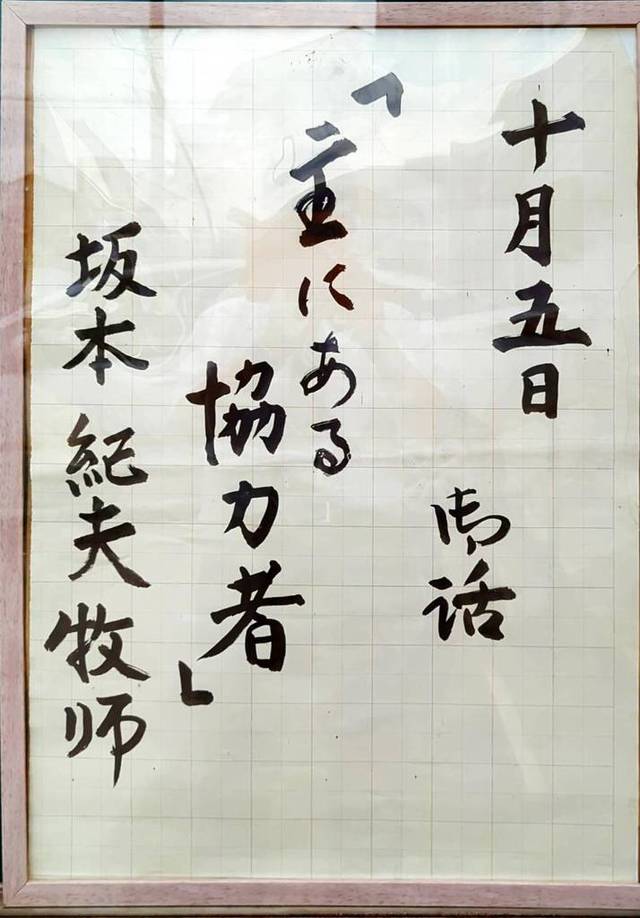 十月五日
御話
「主にある
協力者」
坂本 紀夫 牧师